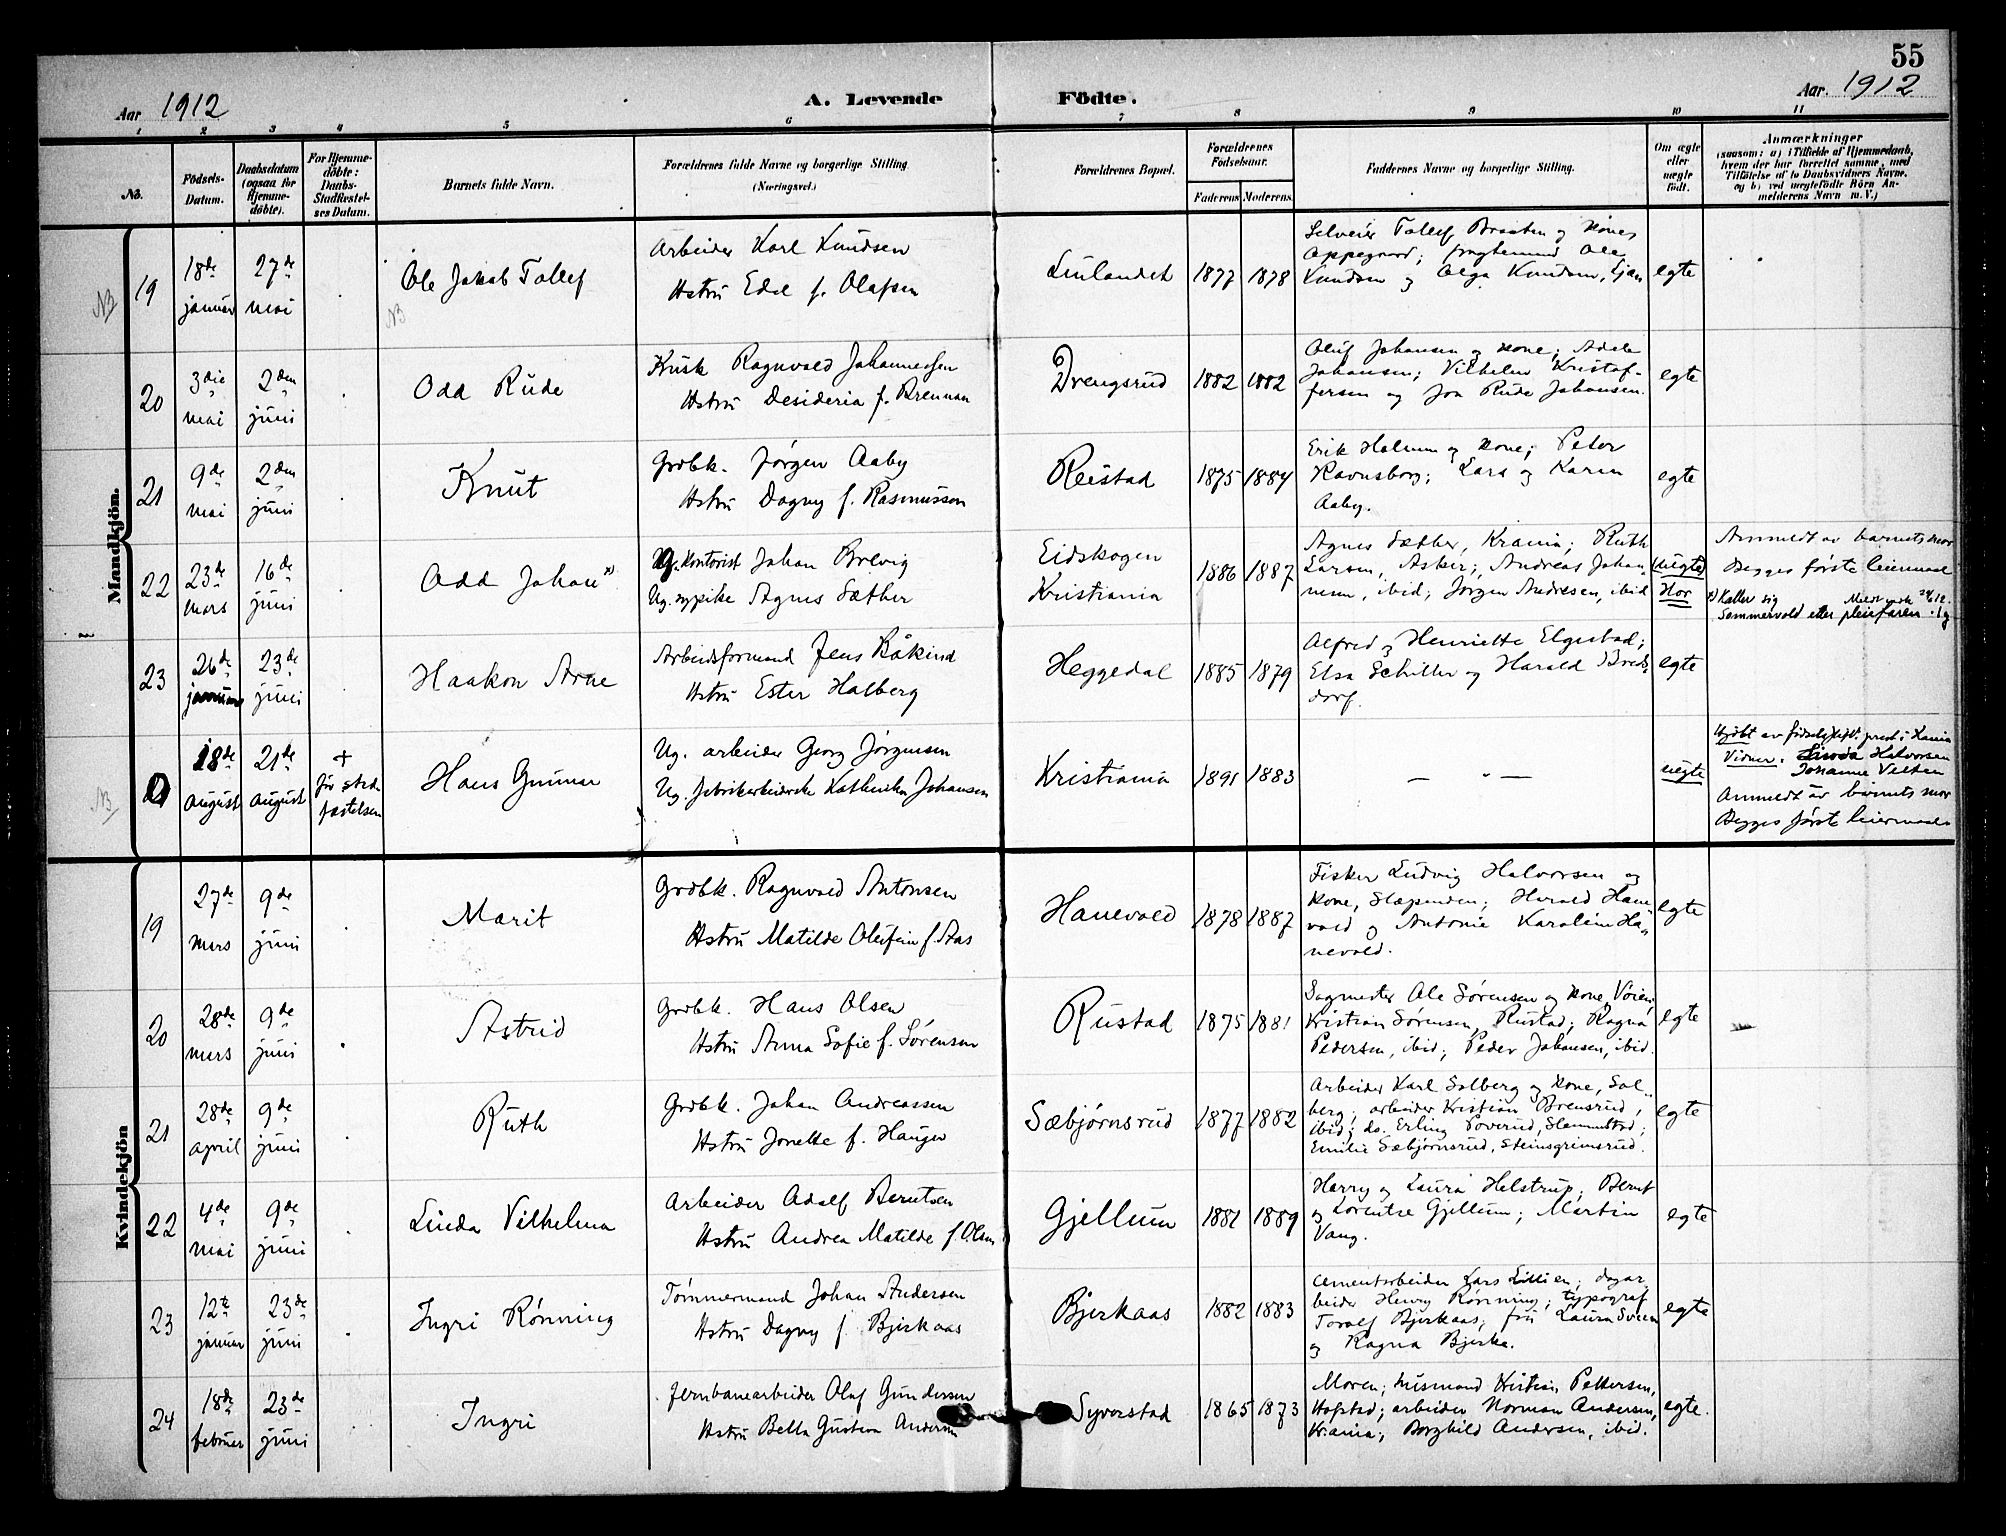 55
Aar 1912
A. Levende Födte.
Aar. 1912
1 2 3 4 5 6 7 8 9 10 11
No.
Födsels-Datum.
Daabsdatum (ogsaa for Hjemme-döbte).
For Hjemme-döbte: Daabs-Stadfæstel-ses Datum.
Barnets fulde Navn.
Forældrenes fulde Navne og borgerlige Stilling.
(Næringsvei.)
Forældrenes Bopæl.
Forældrenes Födselsaar.
Faderens Moderens.
Faddernes Navne og borgerlige Stilling.
Om ægte eller uægte födt.
Anmærkninger
(saasom: a) i Tilfælde af Hjemmedaab, hvem der har forrettet samme, med Tilföielse af to Daabsvidners Navne, og b) ved uægtefödte Börn Anmelderens Navn m. V.)
Mandkjön.
NB
19
18de januar
27de mai
Ole Jakob Tollef
NB
Arbeider Karl Knudsen
Hstru Edel f. Olafsen
1877 1878
Selveier Tollef Braaten og kones
Oppegaard; Ole
Knudsen og Olga Knudsen, Ljan
egte
20
3die mai
2den juni
Odd Rude
Kusk Ragnvald Johannessen
Hstru Desideria f. Brennan
Drengsrud
1882 1882
Oluf Johansen og kone; Adele
Johansen; Vilhelm Kristof-
fersen og Rude Johansen.
egte
21
9de mai
2den juni
Knut
Grdbk. Jörgen Aaby
Hstru Dagny f. Rasmusson
Reistad
1875 1884
Erik Halnum og kone; Peter
Ravnsborg; Lars og Karen
Aaby.
egte
22
23de mars
16de juni
Odd Johan x)
Ug. Kontorist Johan Brevig
Ug. sypike Agnes Sæther
Eidskogen
Kristiania
1886 1887
Agnes Sæther, Krania; Ruth
Larsen, Asker; Andreas Johan-
nesen, ibid; Jörgen Andresen, ibid
(uegte)
Hor
Anmeldt av barnets mor
Begges förste leiermaal
x) Kaller sig
Sommervold efter pleiefaren
23
26de januar
23de juni
Haakon Arne
Arbeidsformand Jens Råkind
Hstru Ester Halberg
Heggedal
1885 1879
Alfred og Henriette Elgestad;
Elsa Schiller og Harald Breds-
dorf.
egte
NB
0
18de august
21de august
† för stad-fæstelsen
Hans Gunnar
Ug. arbeider Georg Jörgensen
Ug. fabrikarbeiderske Kathinka Johansen
Kristiania
1891 1883
— " —
uegte
Hjdöbt av födselsstift. prest i Krania
Vidner: Halvorsen
Johanne Velten
Anmeldt av barnets mor
Begges förste leiermaal
Kvindekjön
19
27de mars
9de juni
Marit
Grdbk. Ragnvald Antonsen
Hstru Matilde Olufine f. Aas
Hanevold
1878 1887
Fisker Ludvig Halvorsen og
kone, Slæpenden; Harald Hane-
vold og Antonie Karoline Ha-
nevold.
egte
20
28de mars
9de juni
Astrid
Grdbk. Hans Olsen
Hstru Anna Sofie f. Sörensen
Rustad
1875 1881
Sagmester Ole Sörensen og kone, Vöien;
Kristian Sörensen, Rustad; Ragna
Pedersen, ibid; Peder Johansen, ibid.
egte
21
28de april
9de juni
Ruth
Grdbk. Johan Andreassen
Hstru Jonette f. Hauger
Sæbjörnsrud
1877 1882
Arbeider Karl Solberg og kone, Sol-
berg; arbeider Kristian Brensrud,
ibid; do. Erling Poverud,
Emilie Sæbjörnsrud, Steinsgrimsrud.
egte
22
4de mai
9de juni
Linda Vilhelma
Arbeider Adolf Berntsen
Hstru Andrea Matilde f. Olsen
Gjellum
1881 1889
Harry og Laura Helstrup; Bernt
og Lorentze Gjellum; Martin
Vang.
egte
23
12te januar
23de juni
Ingri Rönning
Tömmermand Johan Andersen
Hstru Dagny f. Bjerkaas
Bjerkaas
1882 1883
Cementarbeider Lars Lillien; dagar-
beider Henry Rönning; typograf
Toralf Bjerkaas; fru Laura
og Ragna Bjerke.
egte
24
18de februar
23de juni
Ingri
Jernbanearbeider Olaf Gundersen
Hstru Betta Gustava Andersen
Syverstad
1865 1873
Moren; husmand Kristian Pettersen,
Hofstad; arbeider Norman Andersen,
Krania; Borghild Andersen, ibid.
egte.